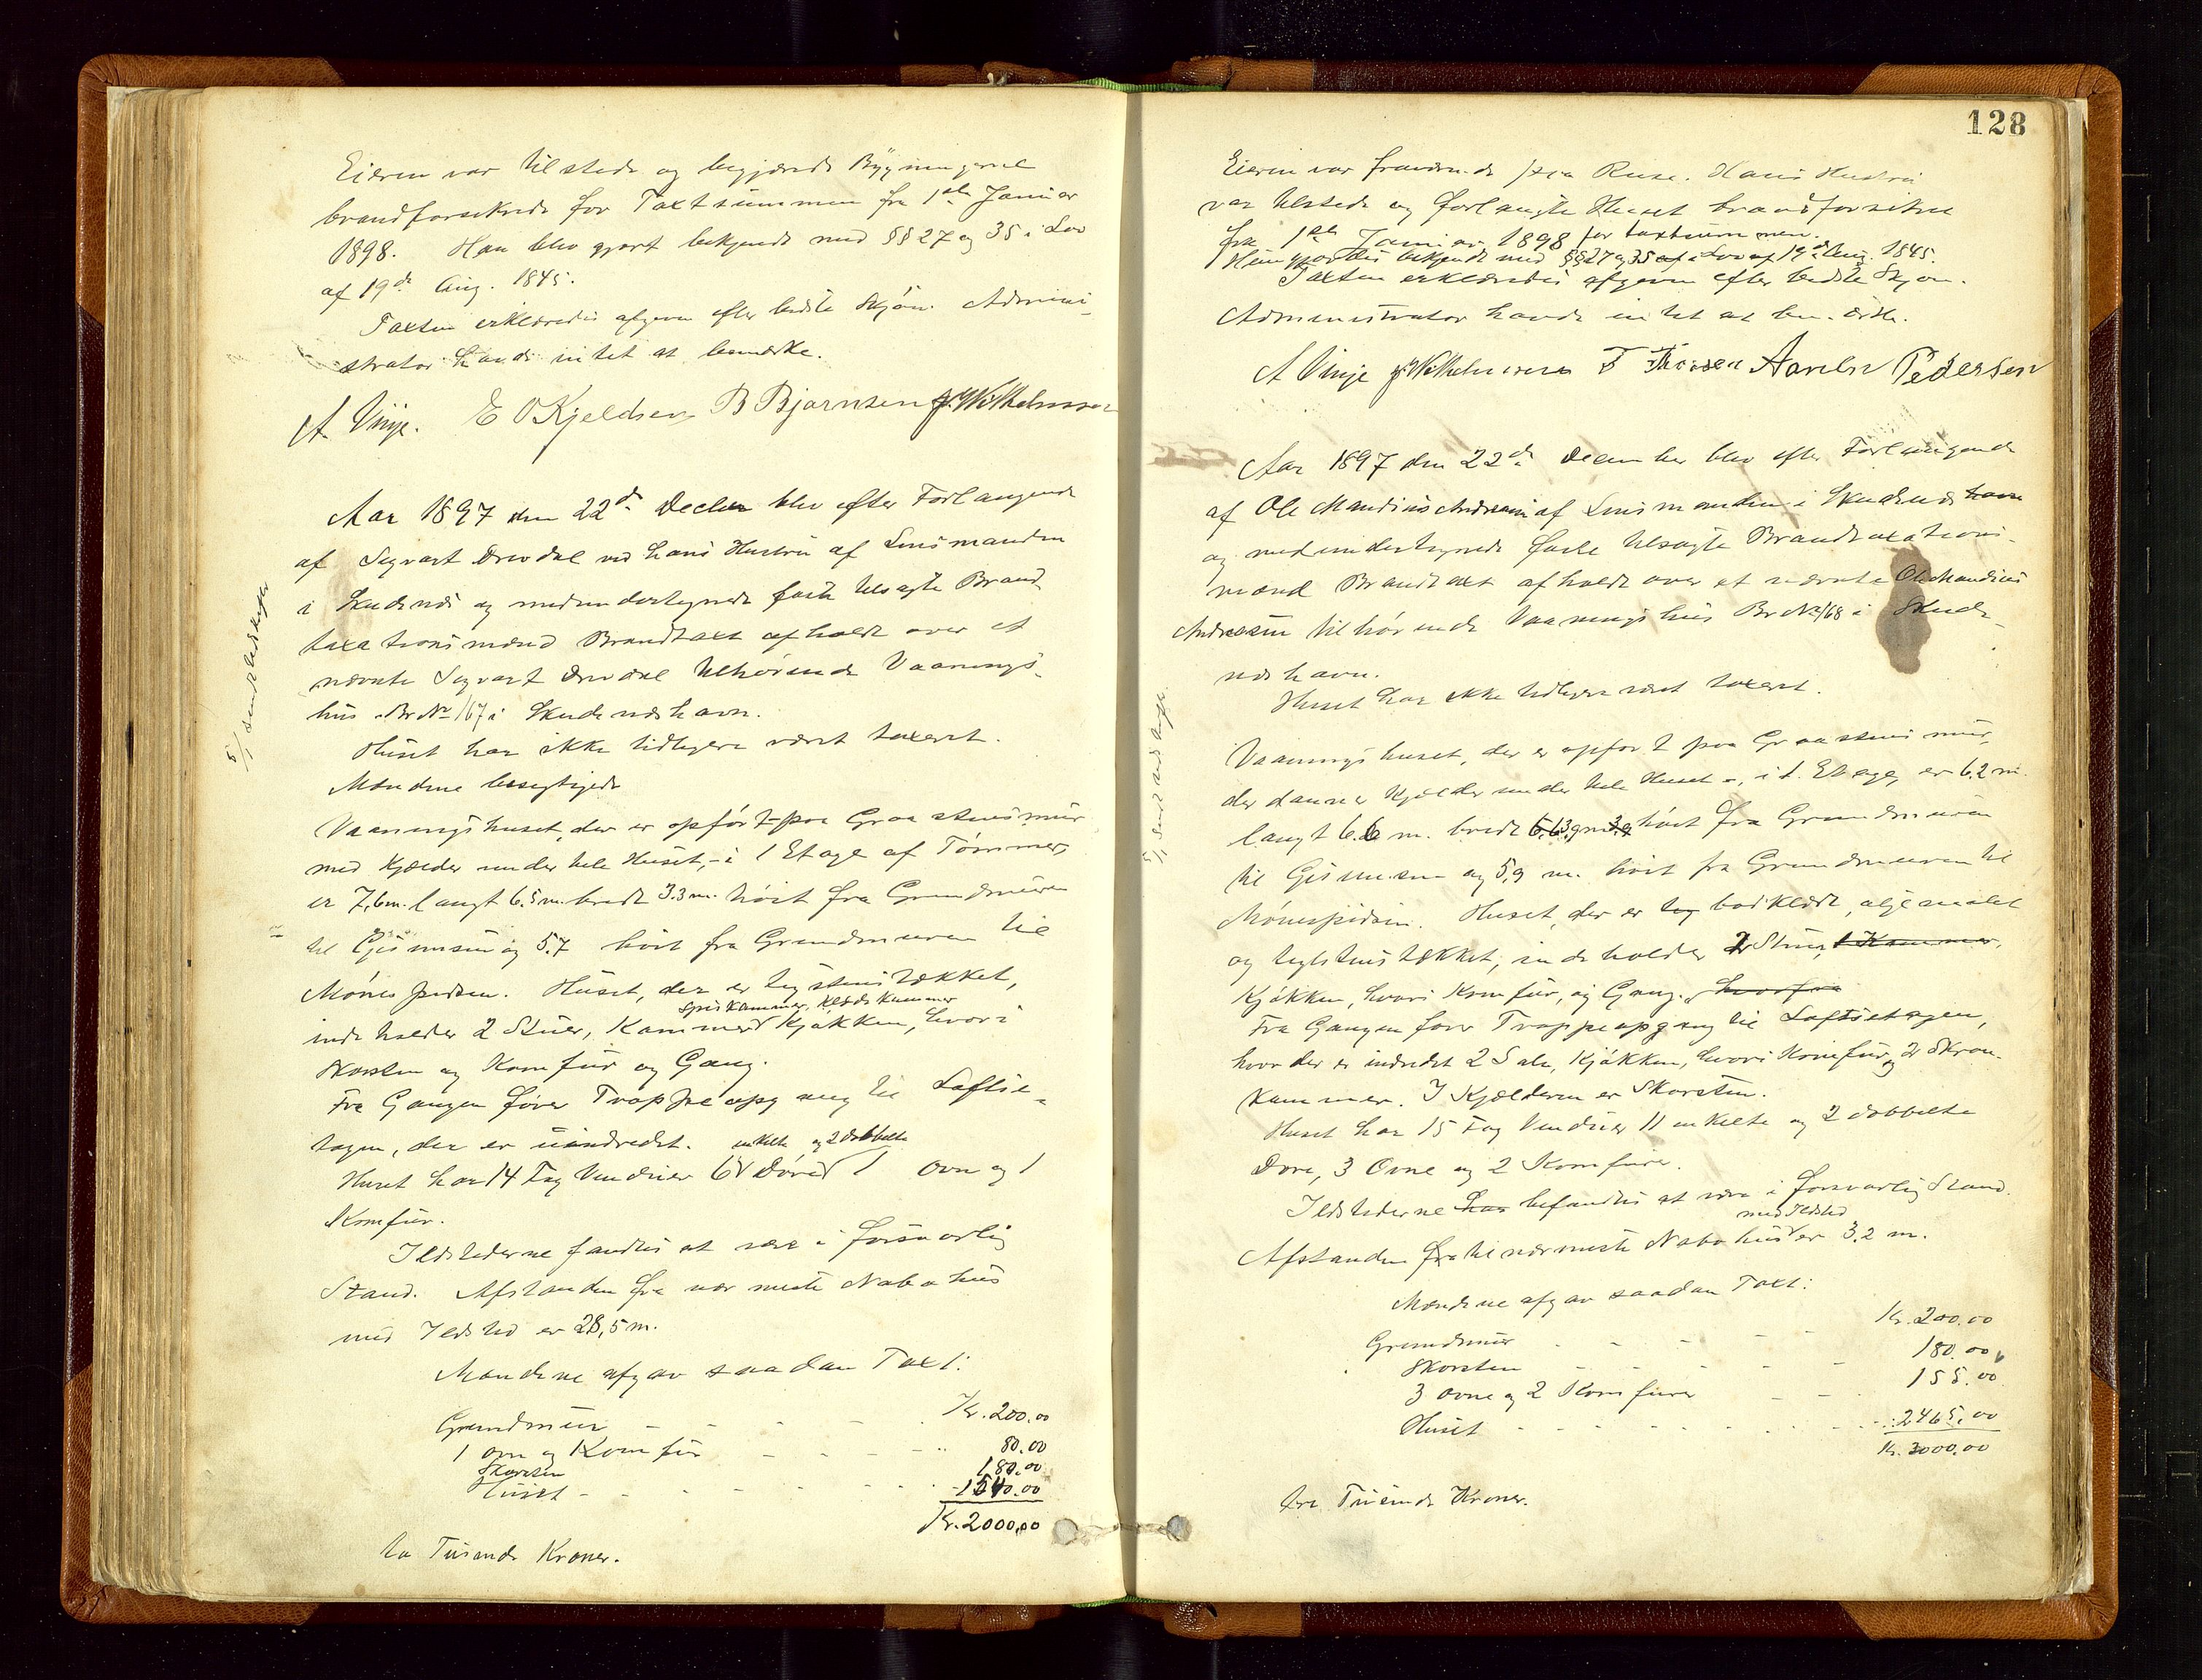 Eieren var tilstede og begjærede Bygningerne
brandforsikrede for Taxtsummen fra 1ste Januar
1898. Han blev gjort bekjendt med §§ 27 og 35 i Lov
af 19de Aug. 1845.
Taxten erklæredes afgiven efter bedste Skjøn. Admini-
strator havde intet at bemærke.
A. Vinje. E O Kjeldsen B Bjørnsen J. Wilhelmsen
Aar 1897 den 22de Decber blev efter Forlangende
af Sigvart Drevdal ved hans Hustru af Lensmanden
i Skudenæs og medundertegnede faste tilsagte Brand
taxationsmænd Brandtaxt afholdt over et
nævnte Sigvart Drevdal tilhørende Vaanings-
hus Br No 167 i Skudenæshavn.
Huset har ikke tidligere været taxeret.
Mændene besigtigede
Vaaningshuset, der er opført paa Graastensmur
med Kjælder under hele Huset, - i 1 Etage af Tømmer,
er 7,6 m. langt 6.5 m. bredt 3.3 m. høit fra Grundmuren
til Gesimsen og 5.7 høit fra Grundmuren til
Mønespidsen. Huset, der er teglstenstækket,
Spiskammer, Klædekammer
indeholder 2 Stuer, Kammer Kjøkken, hvori
Skorsten og Komfur og Gang.
Fra Gangen fører Trappeopgang til Loftse-
tagen, der er uindredet.
enkelte og 2 dobbelte
Huset har 14 Fag Vinduer 6 Døre 1 Ovn og 1
Komfur.
Ildstederne fandtes at være i forsvarlig
Stand. Afstanden fra nærmeste Nabohus
med Ildsted er 28,5 m.
Mændene afgav saadan Taxt:
Grundmur - - - - Kr. 200.00
1 Ovn og 1 Komfur - - - - 80.00
Skorsten 180.00
Huset - - - - - 1540.00
Kr. 2000,00
to Tusinde Kroner.
5/1 sendt Udskrift
128
Eieren var fraværende paa Reise. Hans Hustru
var tilstede og forlangte Huset brandforsikret
fra 1ste Januar 1898 for taxtsummen.
Hun gjordes bekjendt med §§ 27 og 35 i Lov af 19de Aug. 1845.
Taxten erklæredes afgiven efter bedste Skjøn.
Administrator havde intet at bemærke.
A Vinje J. Wilhelmsen T Thorsen Aanen Pedersen
Aar 1897 den 22de December blev efter Forlangende
af Ole Mandius Andreasen af Lensmanden i Skudenæshavn
og medundertegnede faste tilsagte Brandtaxations-
mænd Brandtaxt afholdt over et nævnte Ole Mandius
Andreasen tilhørende Vaaningshus Br No 168 i Skude-
næshavn.
Huset har ikke tidligere været taxeret.
Vaaningshuset, der er opført paa Graastensmur,
der danner Kjælder under hele Huset -, i 1. Etage, er 6,2 m.
langt 6.6 m. bredt 3.9 m. høit fra Grundmuren
til Gesimsen og 5,9 m. høit fra Grundmuren til
Mønespidsen. Huset, der er bordklædt, oljemalet
og teglstenstækket, indeholder 2 Stuer, 1 Kammer,
Kjøkken, hvori Komfur, og Gang. hvorfra
Fra Gangen fører Trappeopgang til Loftsetagen,
hvor der er indredet 2 Sale, Kjøkken, hvori Komfur, og 2 Skraa-
kammer. I Kjælderen er Skorsten.
Huset har 15 Fag Vinduer 11 enkelte og 2 dobbelte
Døre, 3 Ovne og 2 Komfurer.
Ildstederne har befandtes at være i forsvarlig Stand.
med Ildsted
Afstanden fra til nærmeste Nabohus er 3.2 m.
Mændene afgav saadan Taxt:
Grundmur - - - - Kr. 200.00
Skorsten - - - - 180.00
3 Ovne og 2 Komfurer - - 155.00
Huset - - - - - 2465,00
Kr. 3000.00
tre Tusinde Kroner.
5/1 sendt Udskrift.